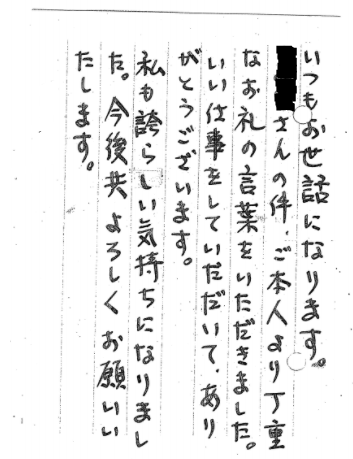 いつもお世話になります。
さんの件、ご本人より丁重
なお礼の言葉をいただきました。
いい仕事をしていただいて、あり
がとうございます。
私も誇らしい気持ちになりまし
た。今後共よろしくお願いい
たします。